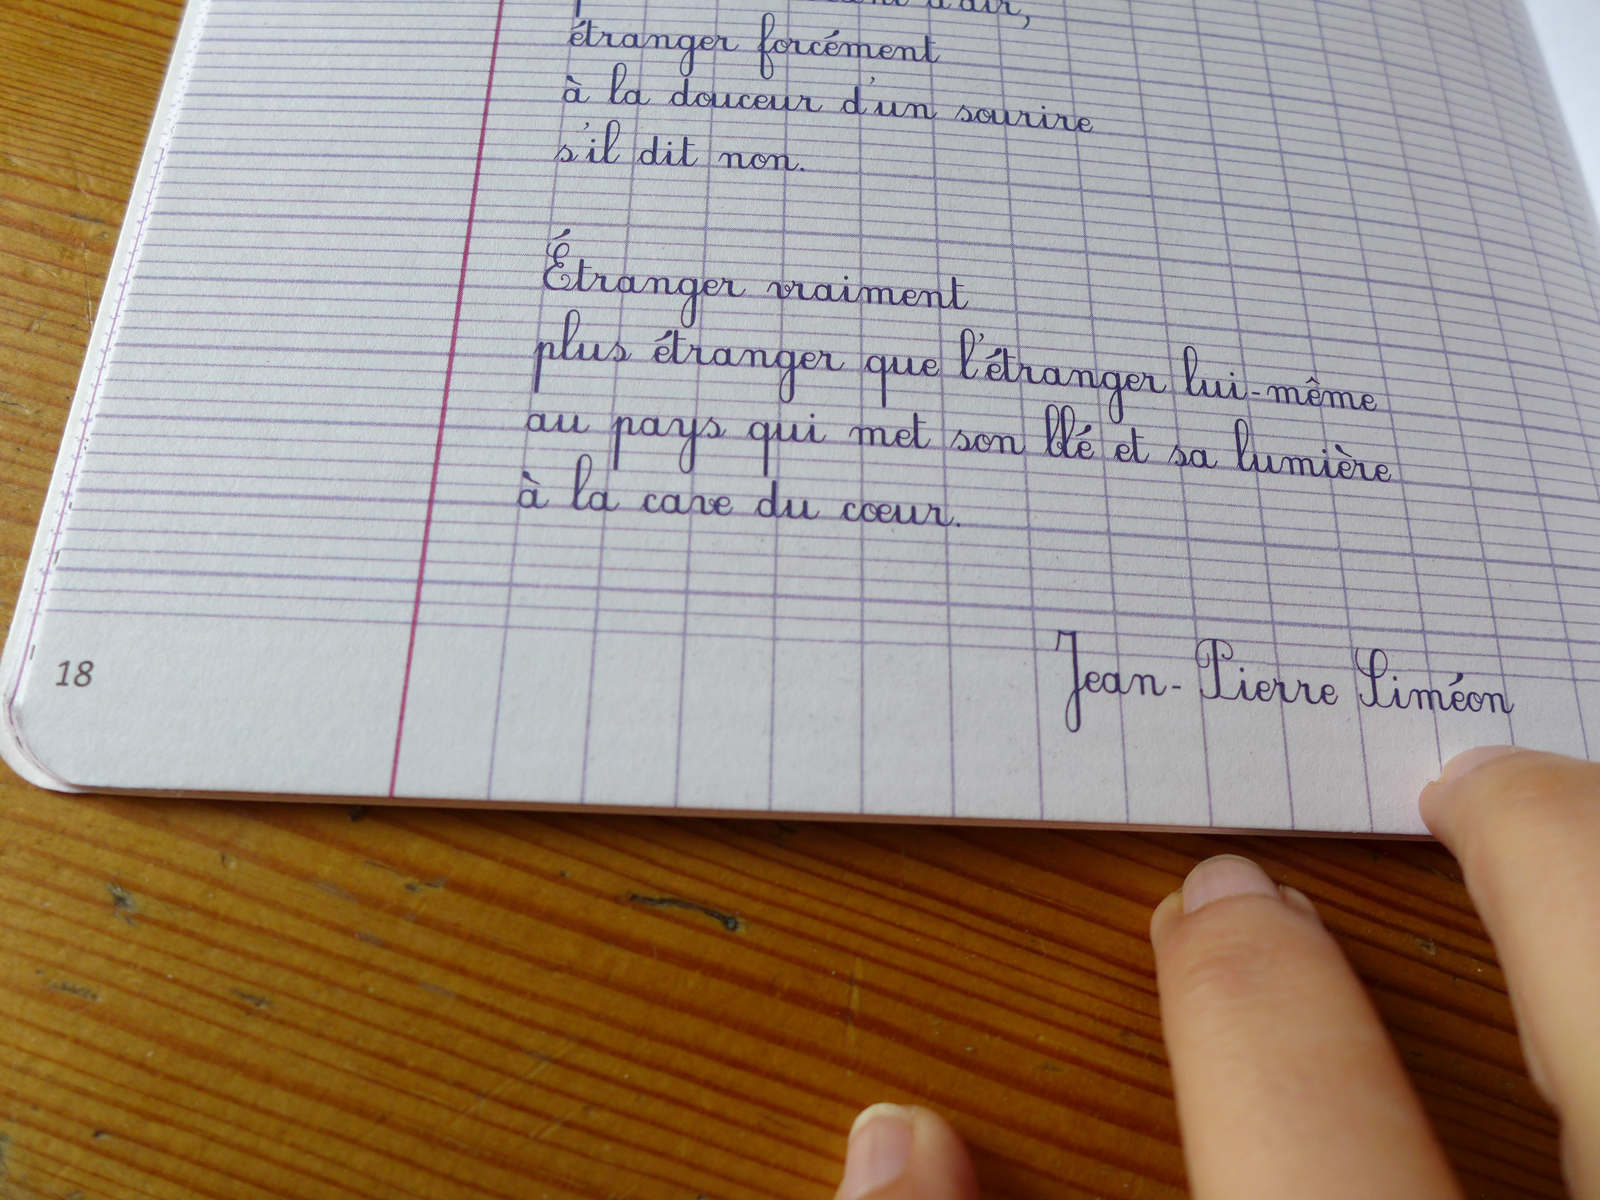 d'air,
étranger forcément
à la douceur d'un sourire
s'il dit non.
Étranger vraiment
plus étranger que l'étranger lui-même
au pays qui met son blé et sa lumière
à la cave du cœur.
Jean-Pierre Siméon
18